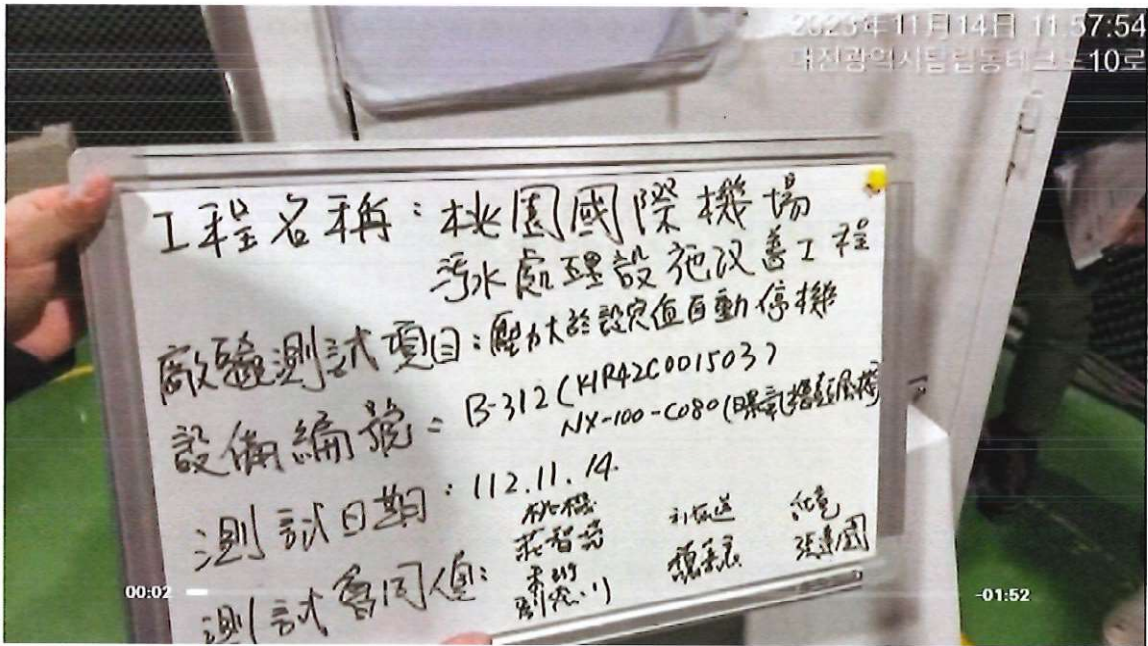 2023年11月14日 11:57:54
대전광역시탑립동테크노10로
工程名稱：桃園國際機場
污水處理設施改善工程
廠驗測試項目：壓力大於設定值自動停機
設備編號： B-312 (K1R42C001503)
NX-100-C080 (曝氣
測試日期：112.11.14.
桃機
莊智
測試會同值：
00:02
-01:52